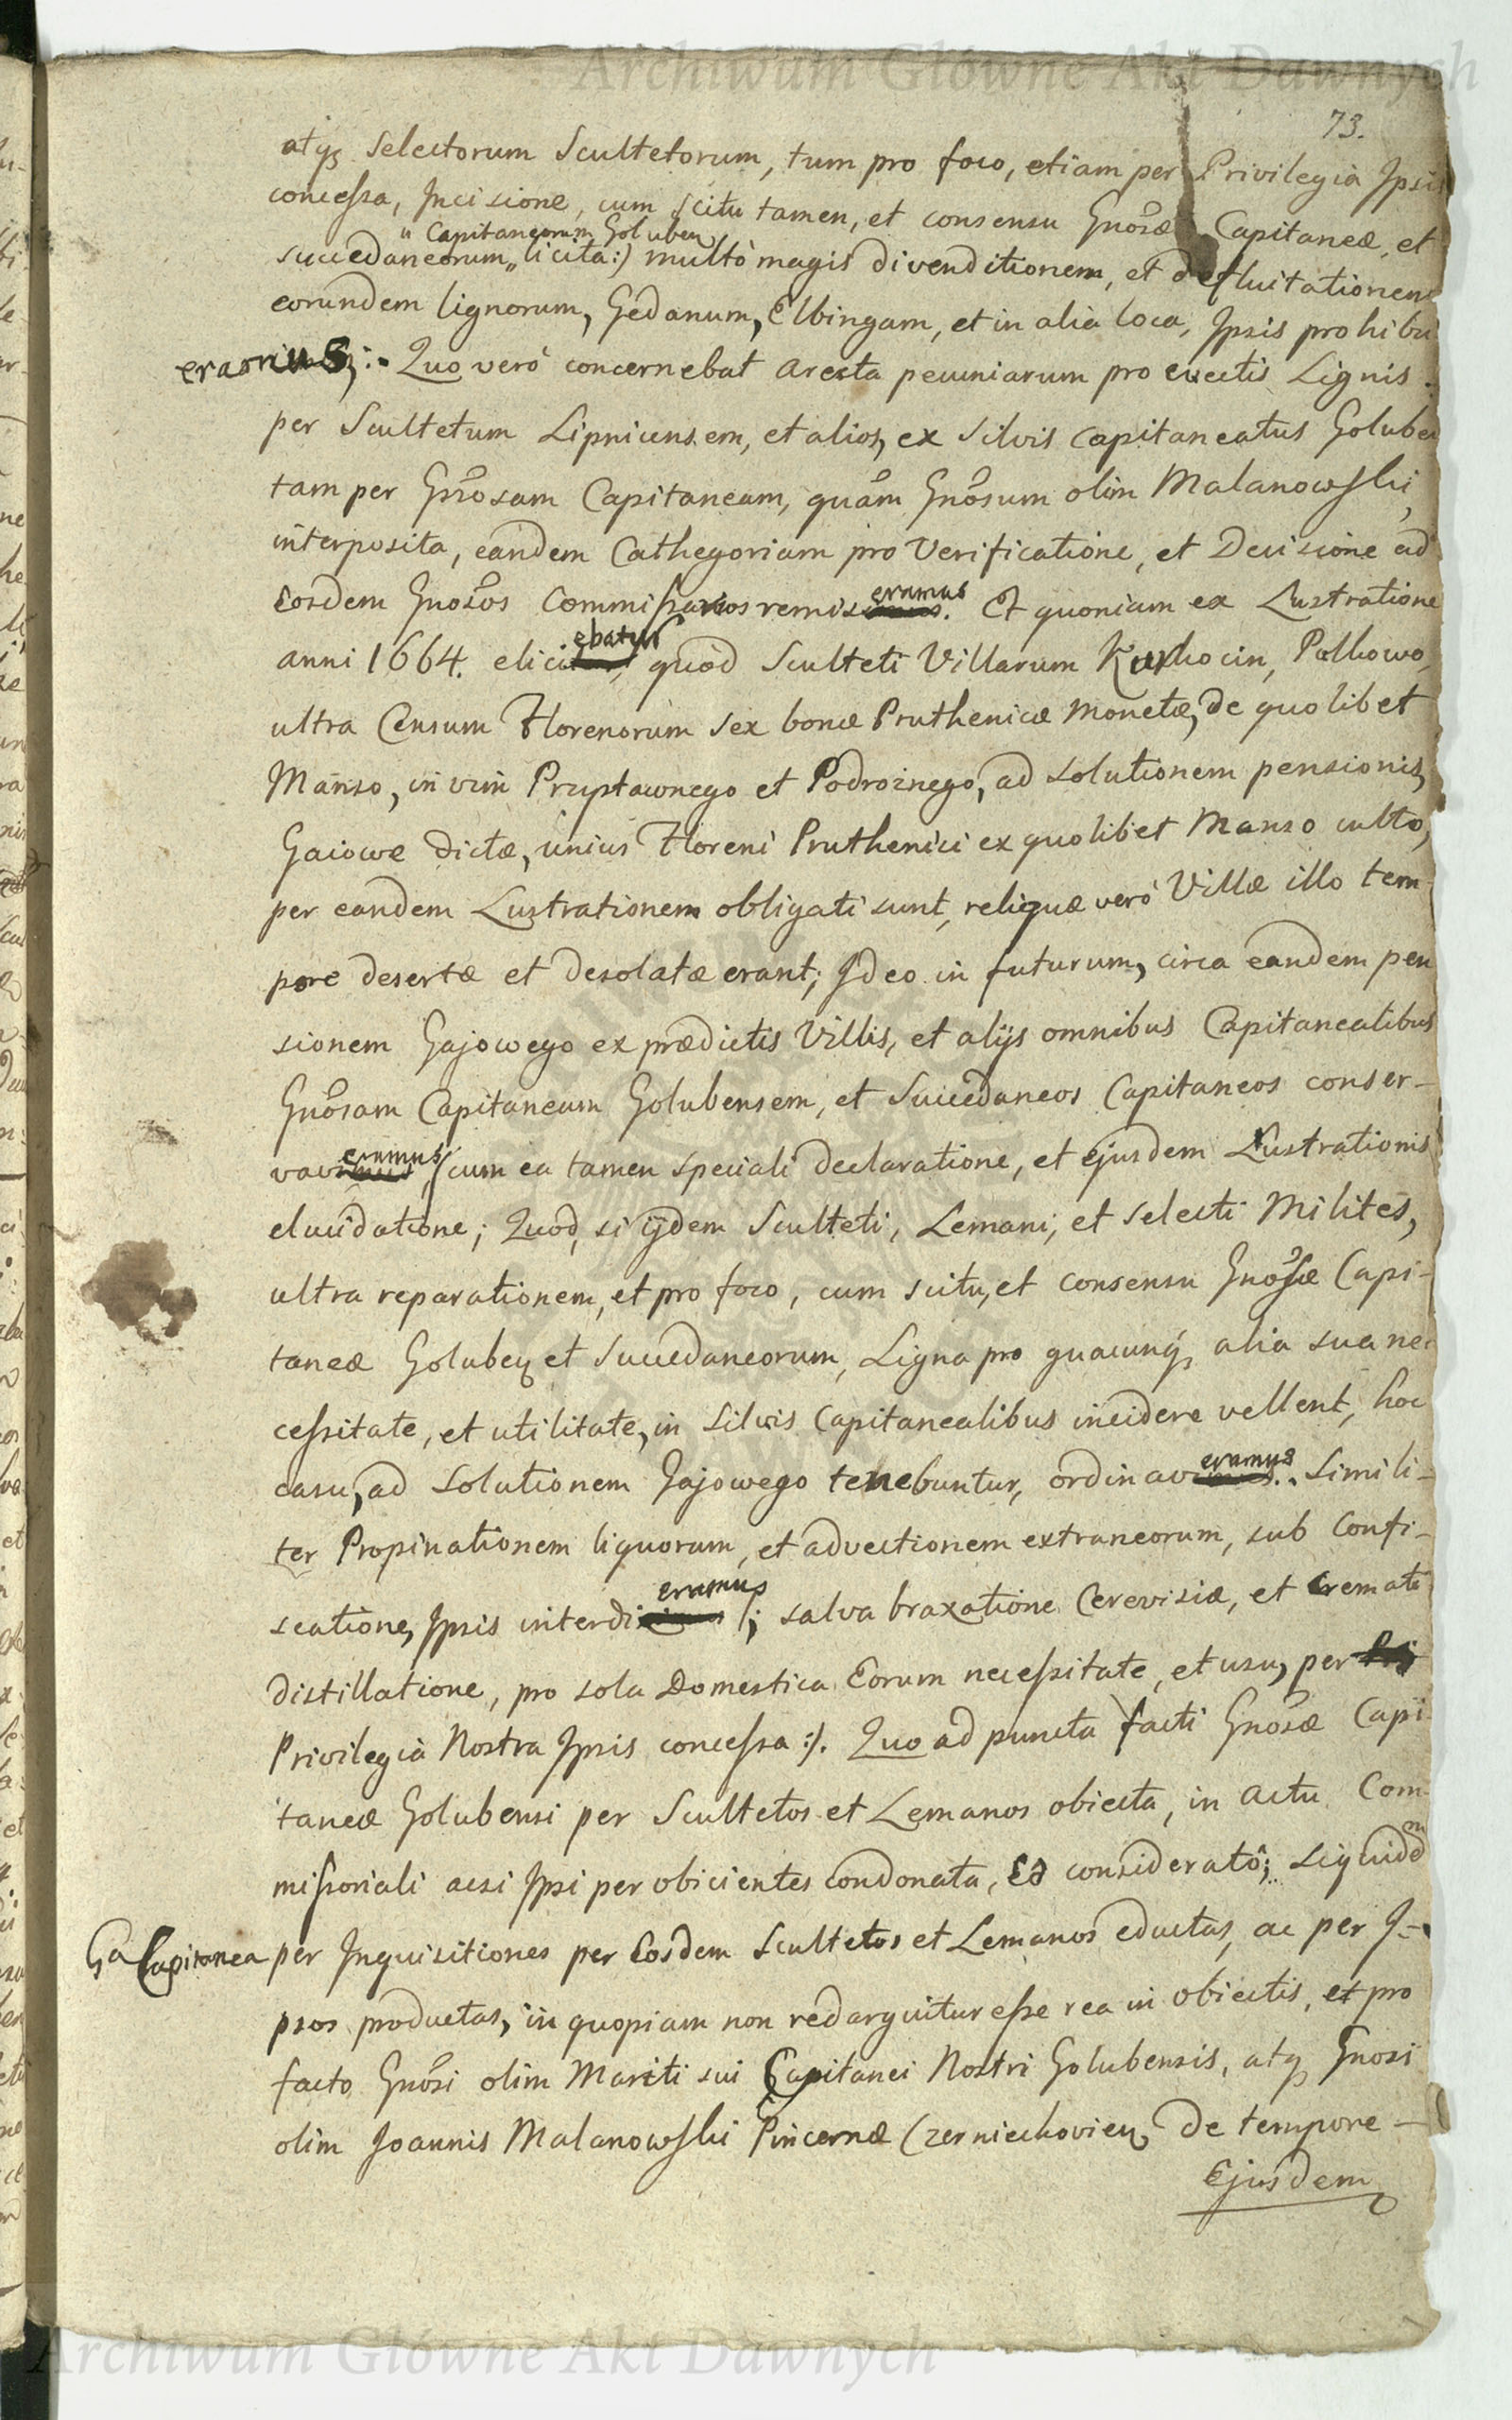 Archiwum Główne Akt Dawnych
73.
atq̃ selectorum Scultetorum, tum pro foco, etiam per Privilegia Ipsis
concessa, Incisione, cum scitu tamen, et consensu Gnosæ Capitaneæ, et
" Capitaneorum Goluben
succedaneorum „ licita:) multò magis divenditionem, et defluitationem
eorundem lignorum, Gedanum, Elbingam, et in alia loca, Ipsis prohibu
eramus;:- Quo verò concernebat aresta pecuniarum pro evectis Lignis
per Scultetum Lipnicensem, et alios, ex silvis Capitaneatus Goluben
tam per Gnosam Capitaneam, quàm Gnosum olim Malanowski,
interposita, eandem Cathegoriam pro Verificatione, et Decisione ad
Eosdem Gnosos Commissarios remis eramus. Et quoniam ex Lustratione
anni 1664. elici ebatur, quòd Sculteti Villarum Kurkocin, Pulkowo,
ultra Censum Florenorum sex bonæ Pruthenicæ Monetæ, de quolibet
Manso, in vim Przystawnego et Podroznego, ad solutionem pensionis,
Gaiowe dictæ, unius Floreni Pruthenici ex quolibet Manso culto,
per eandem Lustrationem obligati sunt, reliquæ verò Villæ illo tem
pore desertæ et desolatæ erant; Ideo in futurum, circa eandem pen
sionem Gajowego ex prædictis Villis, et alijs omnibus Capitanealibus
Gnosam Capitaneam Golubensem, et Succedaneos Capitaneos conser-
vav eramus, (cum ea tamen speciali declaratione, et ejusdem Lustrationis
elucidatione; Quod, si ijdem Sculteti, Lemani, et selecti Milites,
ultra reparationem, et pro foco, cum scitu, et consensu Gnosæ Capi-
taneæ Goluben et Succedaneorum, Ligna pro quacunq́ alia sua ne-
cessitate, et utilitate, in silvis Capitanealibus incidere vellent, hoc
casu, ad solutionem Gajowego tenebuntur, ordinav eramus.. Simili-
ter Propinationem liquorum, et advectionem extraneorum, sub Confi-
scatione, Ipsis interdix eramus (; salva braxatione Cerevisiæ, et Cremati
distillatione, pro sola Domestica Eorum necessitate, et usu, per
Privilegia Nostra Ipsis concessa:). Quo ad puncta facti Gnosæ Capi
taneæ Golubensi per Scultetos et Lemanos obiecta, in Actu Com
missoriali acsi Ipsi per obicientes condonata, Eo considerato; siquidem
Ga Capitanea per Inquisitiones per Eosdem Scultetos et Lemanos eductas, ac per I-
psos productas, in quopiam non redarguitur esse rea in obiectis, et pro
facto Gnosi olim Mariti sui Capitanei Nostri Golubensis, atq Gnosi
olim Joannis Malanowski Pincernæ Czerniechovien, de tempore –
Ejusdem
Archiwum Główne Akt Dawnych